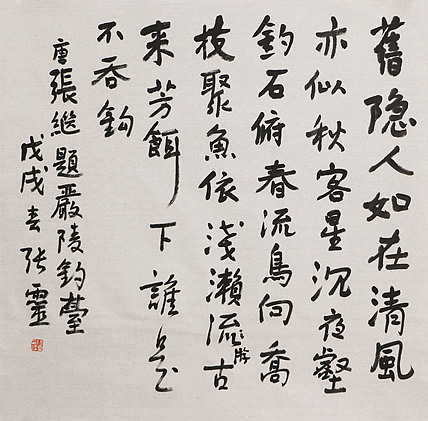 舊隐人如在清風
亦似秋客星沉夜壑
釣石俯春流鳥向喬
枝聚魚依淺瀨流游古
来芳餌下誰是
不吞鈎
唐張継題嚴陵釣臺
戊戌春张靈